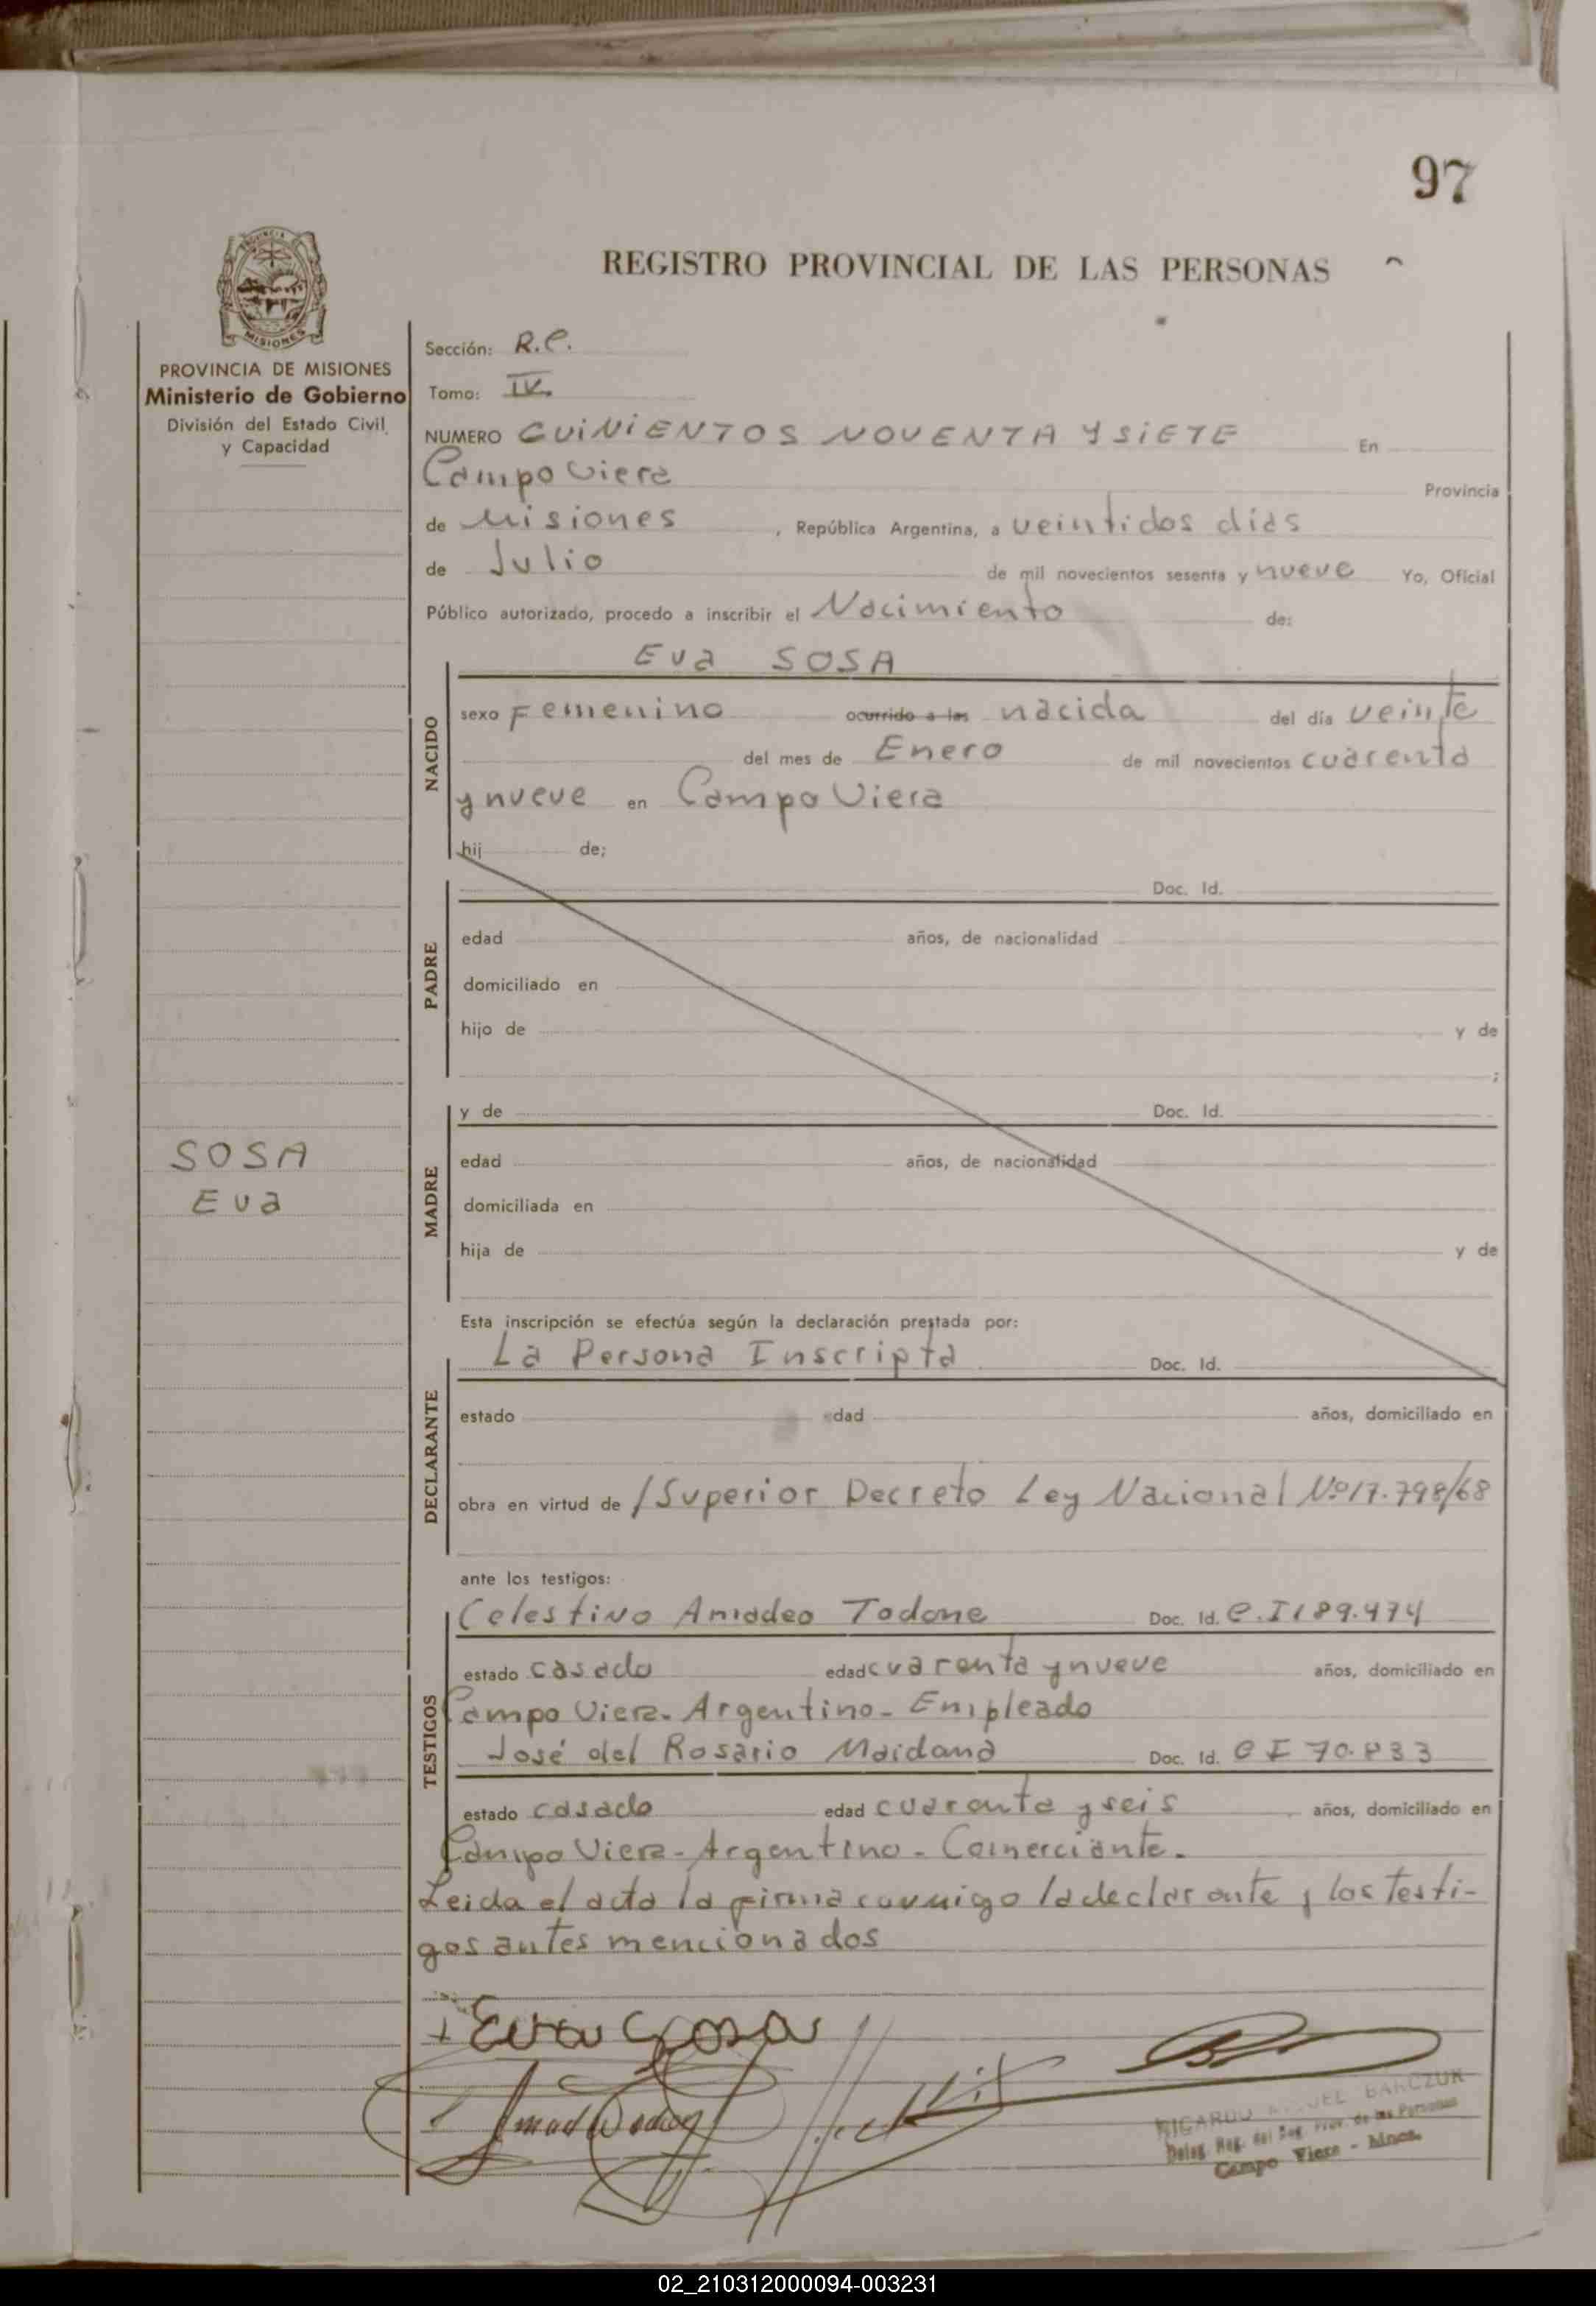 97
REGISTRO PROVINCIAL DE LAS PERSONAS
PROVINCIA DE MISIONES
Ministerio de Gobierno
División del Estado Civil
y Capacidad
Sección: R.C.
Tomo: IV.
NUMERO QUINIENTOS NOVENTA Y SIETE En
Campo Viera Provincia
de Misiones, República Argentina, a veintidos dias
de Julio de mil novecientos sesenta y nueve Yo, Oficial
Público autorizado, procedo a inscribir el Nacimiento de:
Eva SOSA
NACIDO
sexo Femenino ocurrido a las nacida del día veinte
del mes de Enero de mil novecientos cuarenta
y nueve en Campo Viera
hij de;
PADRE
Doc. Id.
edad años, de nacionalidad
domiciliado en
hijo de y de
;
MADRE
y de Doc. Id.
edad años, de nacionalidad
domiciliada en
hija de y de
SOSA
Eva
Esta inscripción se efectúa según la declaración prestada por:
La Persona Inscripta Doc. Id.
DECLARANTE
estado edad años, domiciliado en
obra en virtud de /Superior Decreto Ley Nacional Nº17.798/68
ante los testigos:
TESTIGOS
Celestino Amadeo Todone Doc. Id. C.I 189.474
estado casado edad cuarenta y nueve años, domiciliado en
Campo Viera- Argentino- Empleado
José del Rosario Maidana Doc. Id. CI 70.833
estado casado edad cuarenta y seis años, domiciliado en
Campo Viera-Argentino-Comerciante.
Leida el acta la firma conmigo la declarante y los testi-
gos antes mencionados
Eva Sosa
RICARDO MIGUEL BARCZUK
Deleg. Reg. del Reg. Prov. de las Personas
Campo Viera - Mnes.
02_210312000094-003231